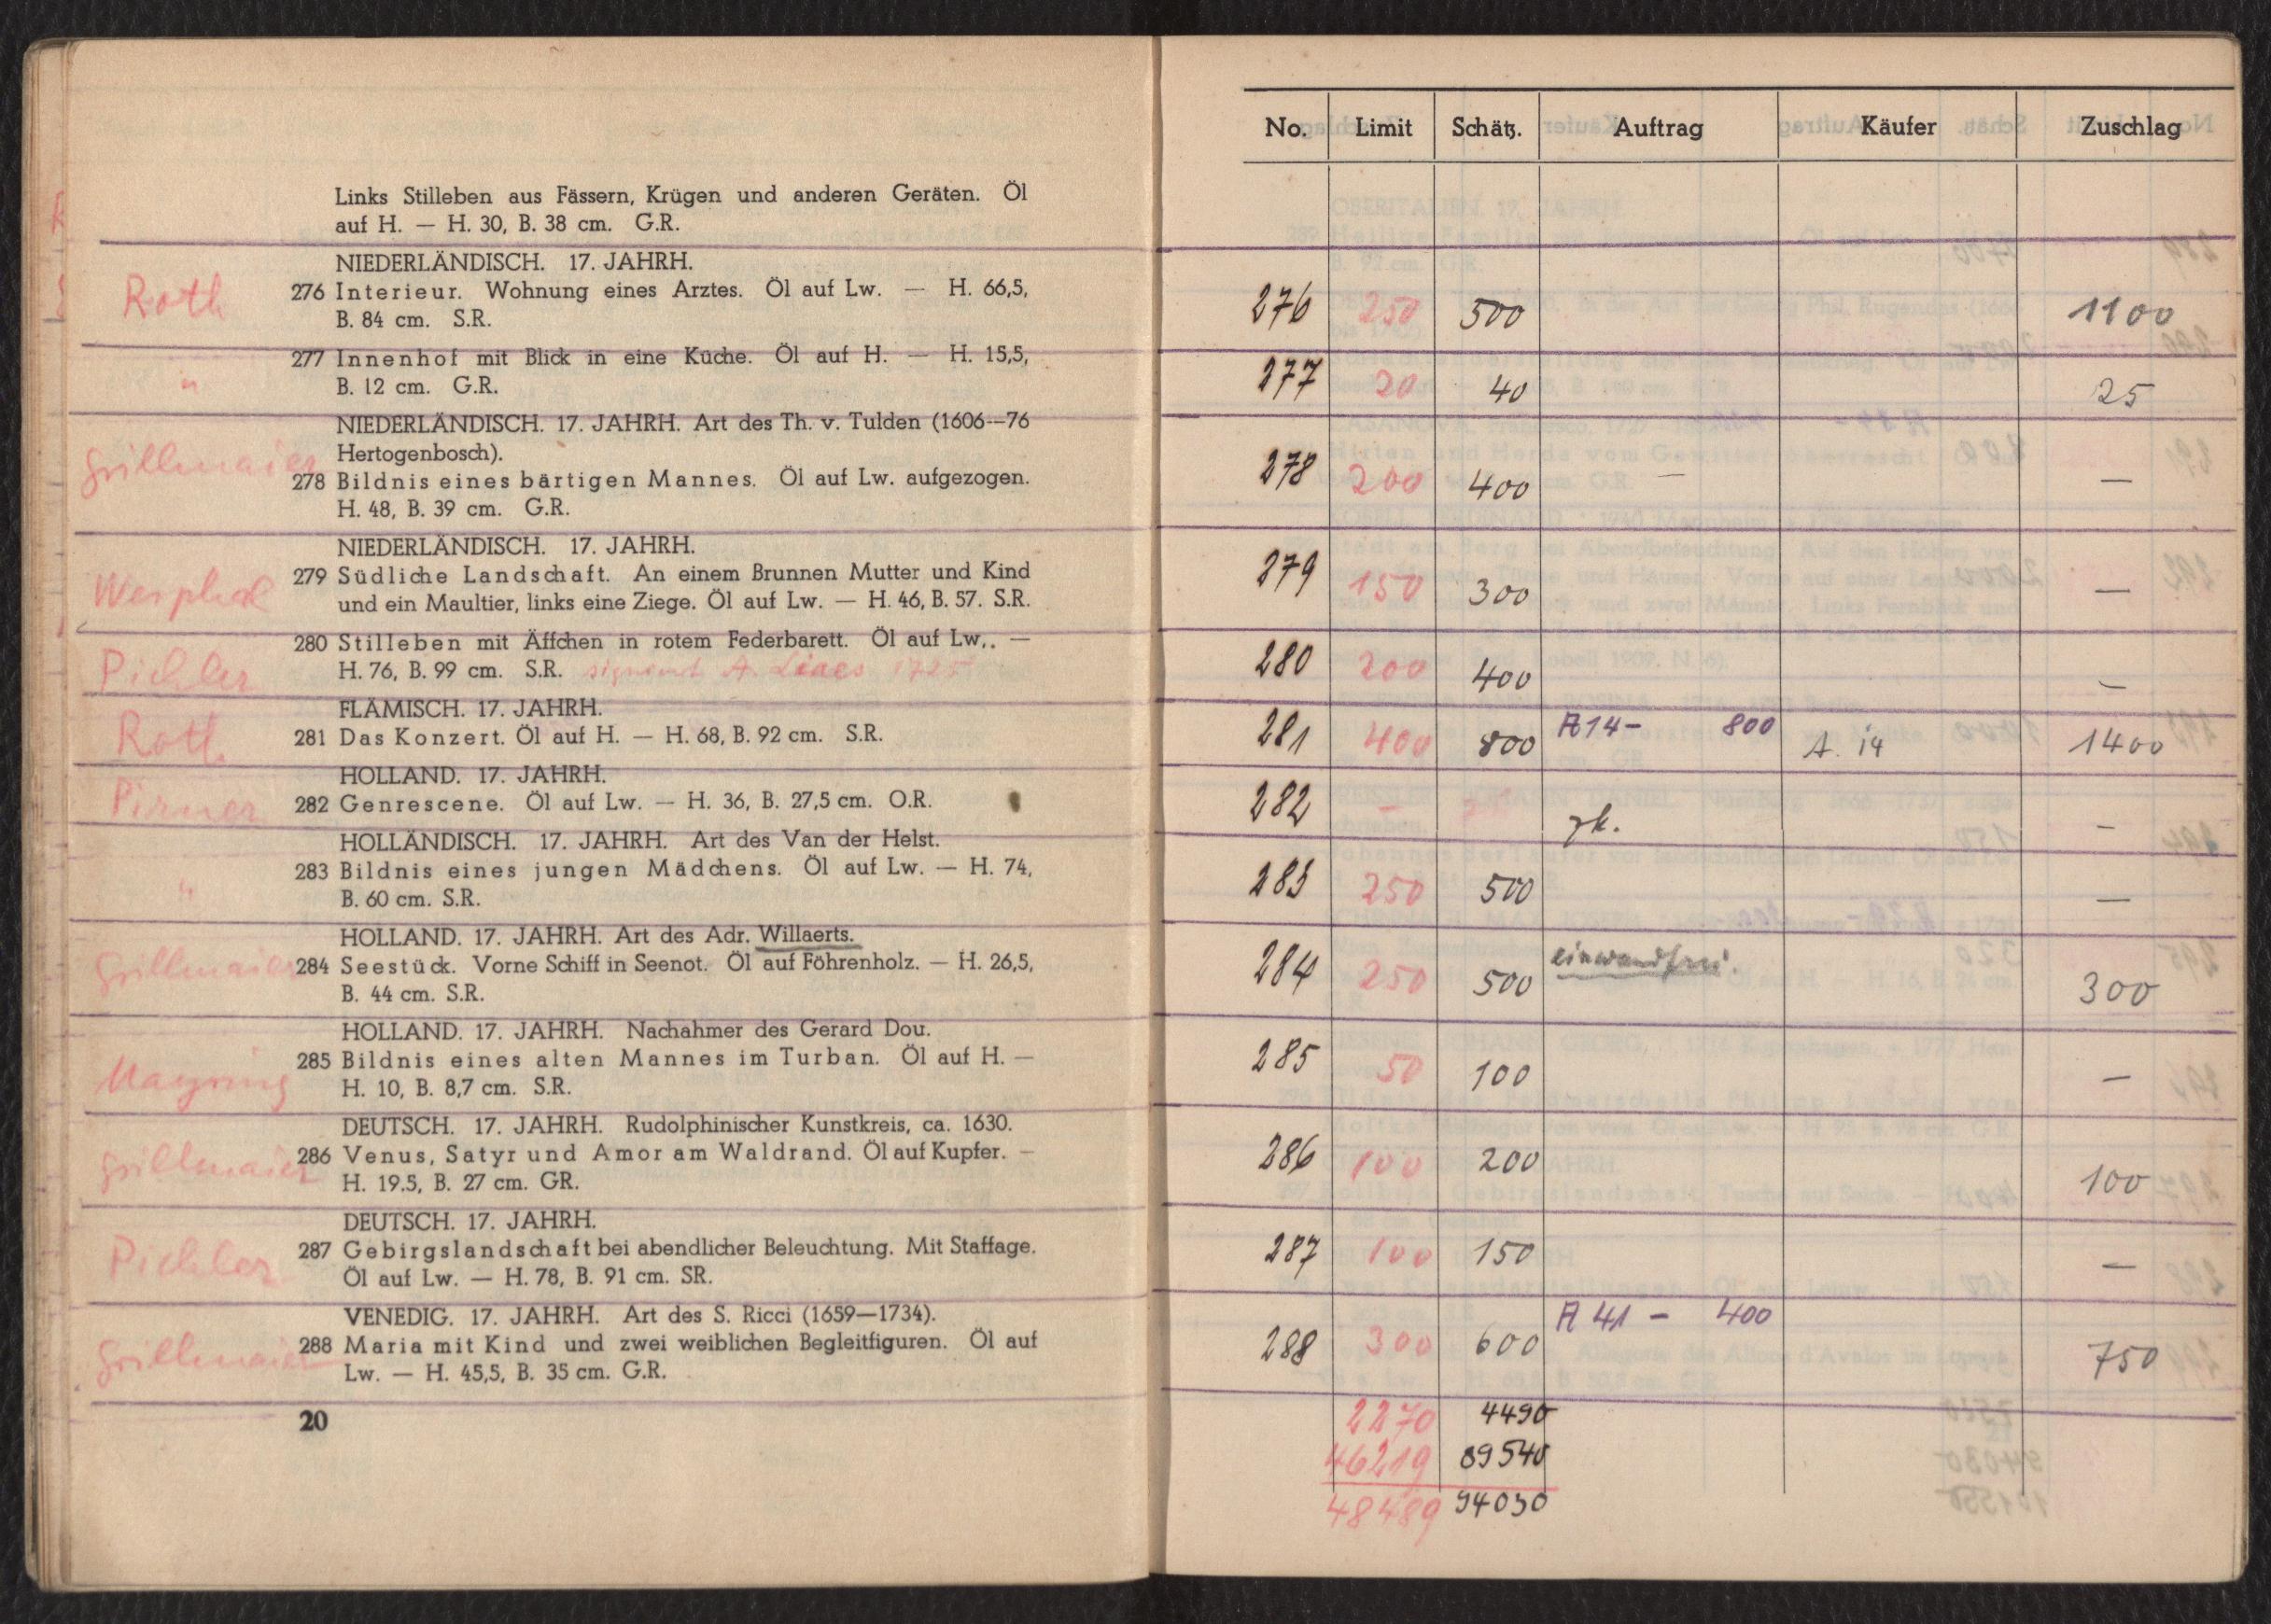 Links Stilleben aus Fässern, Krügen und anderen Geräten. Öl
auf H. — H. 30, B. 38 cm. G.R.
NIEDERLÄNDISCH. 17. JAHRH.
Roth 276 Interieur. Wohnung eines Arztes. Öl auf Lw. — H. 66,5,
B. 84 cm. S.R.
277 Innenhof mit Blick in eine Küche. Öl auf H. — H. 15,5,
" B. 12 cm. G.R.
NIEDERLÄNDISCH. 17. JAHRH. Art des Th. v. Tulden (1606—76
Grillmaier Hertogenbosch).
278 Bildnis eines bärtigen Mannes. Öl auf Lw. aufgezogen.
H. 48, B. 39 cm. G.R.
NIEDERLÄNDISCH. 17. JAHRH.
279 Südliche Landschaft. An einem Brunnen Mutter und Kind
Wesphal und ein Maultier, links eine Ziege. Öl auf Lw. — H. 46, B. 57. S.R.
280 Stilleben mit Äffchen in rotem Federbarett. Öl auf Lw,. —
Pichler H. 76, B. 99 cm. S.R. signiert A.
FLÄMISCH. 17. JAHRH.
Roth 281 Das Konzert. Öl auf H. — H. 68, B. 92 cm. S.R.
HOLLAND. 17. JAHRH.
Pirner 282 Genrescene. Öl auf Lw. — H. 36, B. 27,5 cm. O.R.
HOLLÄNDISCH. 17. JAHRH. Art des Van der Helst.
283 Bildnis eines jungen Mädchens. Öl auf Lw. — H. 74,
" B. 60 cm. S.R.
HOLLAND. 17. JAHRH. Art des Adr. Willaerts.
Grillmaier 284 Seestück. Vorne Schiff in Seenot. Öl auf Föhrenholz. — H. 26,5,
B. 44 cm. S.R.
HOLLAND. 17. JAHRH. Nachahmer des Gerard Dou.
285 Bildnis eines alten Mannes im Turban. Öl auf H. —
Mayring H. 10, B. 8,7 cm. S.R.
DEUTSCH. 17. JAHRH. Rudolphinischer Kunstkreis, ca. 1630.
Grillmaier 286 Venus, Satyr und Amor am Waldrand. Öl auf Kupfer. —
H. 19.5, B. 27 cm. GR.
DEUTSCH. 17. JAHRH.
Pichler 287 Gebirgslandschaft bei abendlicher Beleuchtung. Mit Staffage.
Öl auf Lw. — H. 78, B. 91 cm. SR.
VENEDIG. 17. JAHRH. Art des S. Ricci (1659—1734).
Grillmaier 288 Maria mit Kind und zwei weiblichen Begleitfiguren. Öl auf
Lw. — H. 45,5, B. 35 cm. G.R.
20
No. Limit Schätz. Auftrag Käufer Zuschlag
276 250 500 1100
277 20 40 25
278 200 400 — —
279 150 300 —
280 200 400 —
281 400 800 A 14 – 800 A. 14 1400
282 – zk. –
283 250 500 —
284 250 500 einwandfrei. 300
285 50 100 —
286 100 200 100
287 100 150 —
288 300 600 A 41 – 400 750
2270 4490
46219 89540
48489 94030